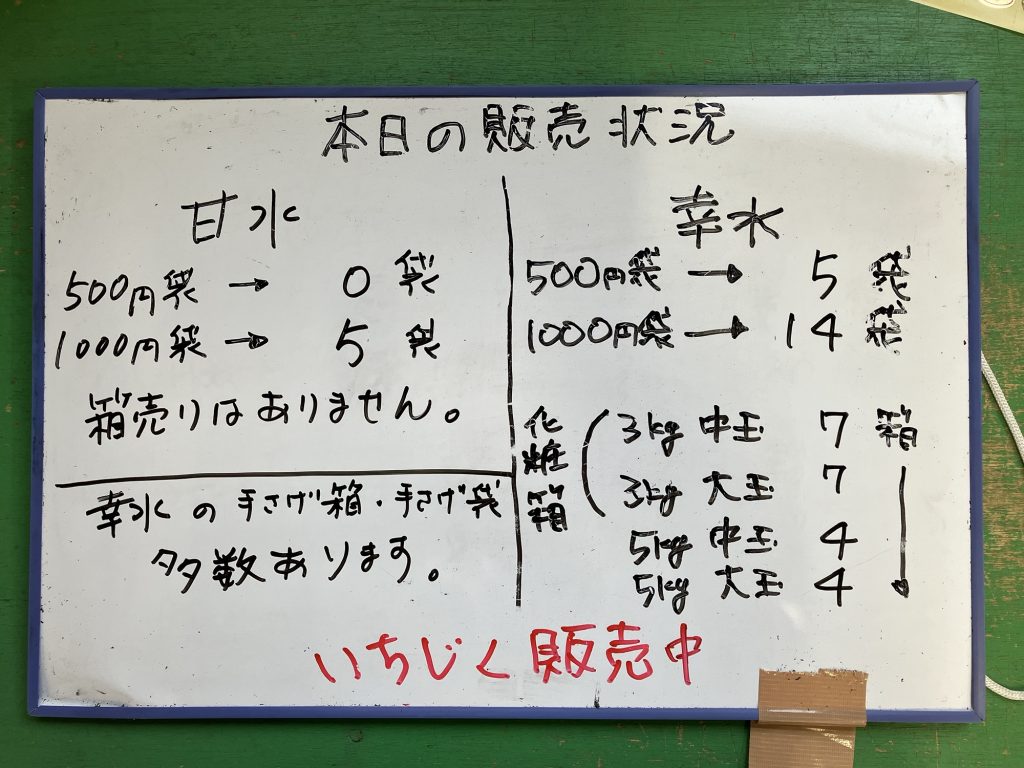 本日の販売状況
甘水
500円袋 → 0 袋
1000円袋 → 5 袋
箱売りはありません。
幸水の手さげ箱・手さげ袋
多数あります。
幸水
500円袋 → 5 袋
1000円袋 → 14 袋
化粧箱
3kg 中玉 7 箱
3kg 大玉 7
5kg 中玉 4
5kg 大玉 4
いちじく販売中